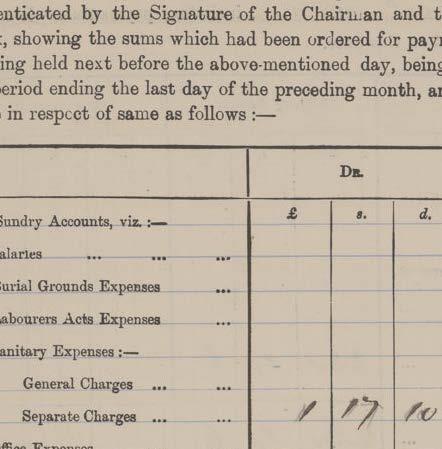 enticated by the Signature of the Chairman and t
, showing the sums which had been ordered for payn
ing held next before the above-mentioned day, being
period ending the last day of the preceding month, an
in respect of same as follows :—
Dr.
£ s. d.
Sundry Accounts, viz. :—
alaries ... ... ...
urial Grounds Expenses ...
abourers Acts Expenses ...
anitary Expenses :—
General Charges ... ...
Separate Charges ... ... 1 17 10
ffice Expenses